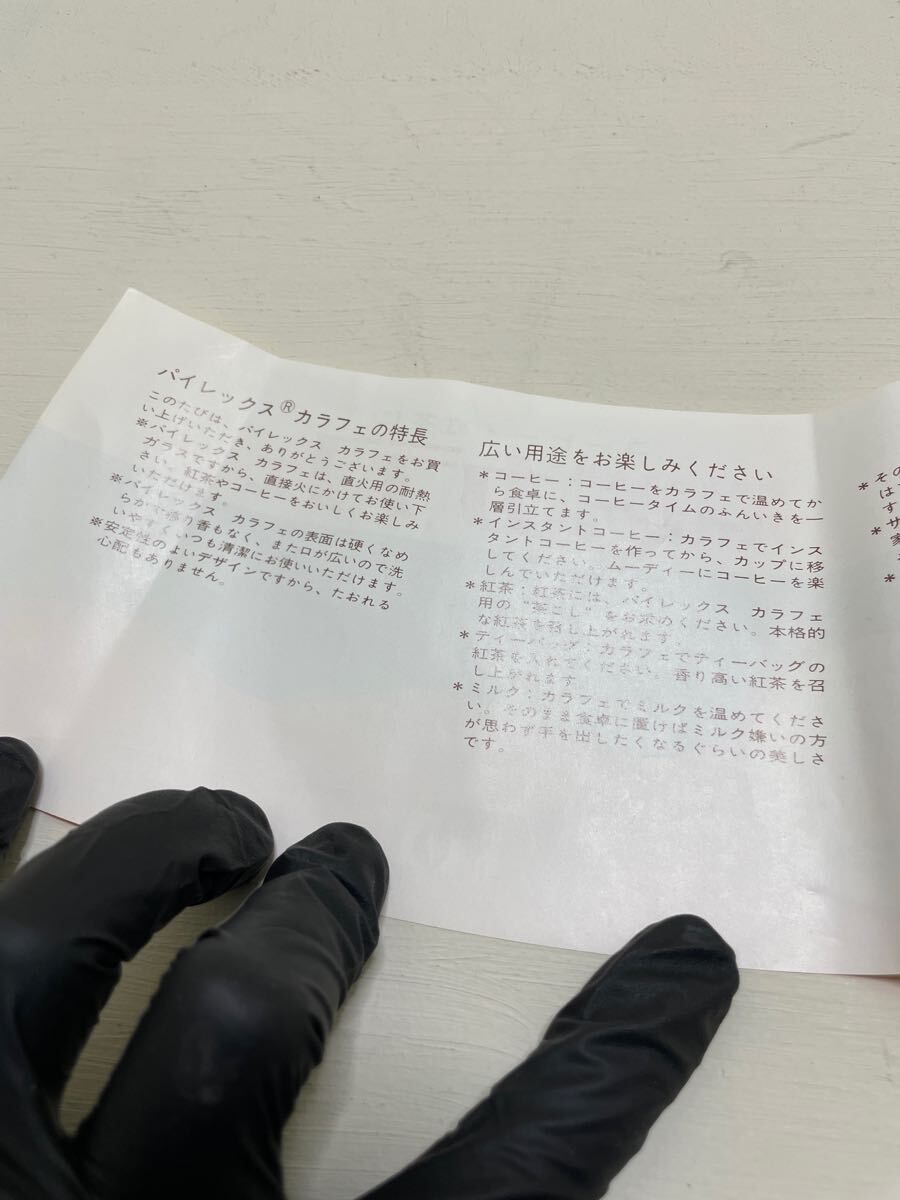 パイレックス®カラフェの特長
このたびは、パイレックス カラフェをお買
い上げいただき、ありがとうございます。
※パイレックス カラフェは、直火用の耐熱
ガラスですから、直接火にかけてお使い下
さい。紅茶やコーヒーをおいしくお楽しみ
いただけます。
※パイレックス カラフェの表面は硬くなめ
らかで移り香もなく、また口が広いので洗
いやすく、いつも清潔にお使いいただけます。
※安定性のよいデザインですから、たおれる
心配もありません。
広い用途をお楽しみください
*コーヒー：コーヒーをカラフェで温めてか
ら食卓に、コーヒータイムのふんいきを一
層引立てます。
*インスタントコーヒー：カラフェでインス
タントコーヒーを作ってから、カップに移
してください。ムーディーにコーヒーを楽
しんでいただけます。
*紅茶：紅茶には、パイレックス カラフェ
用の“茶こし”をお求めください。本格的
な紅茶を召し上がれます
*ティーバッグ：カラフェでティーバッグの
紅茶を入れてください。香り高い紅茶を召
し上がれます。
*ミルク：カラフェでミルクを温めてくださ
い。そのまま食卓に置けばミルク嫌いの方
が思わず手を出したくなるぐらいの美しさ
です。
*その
は、
す
*サ
家
*